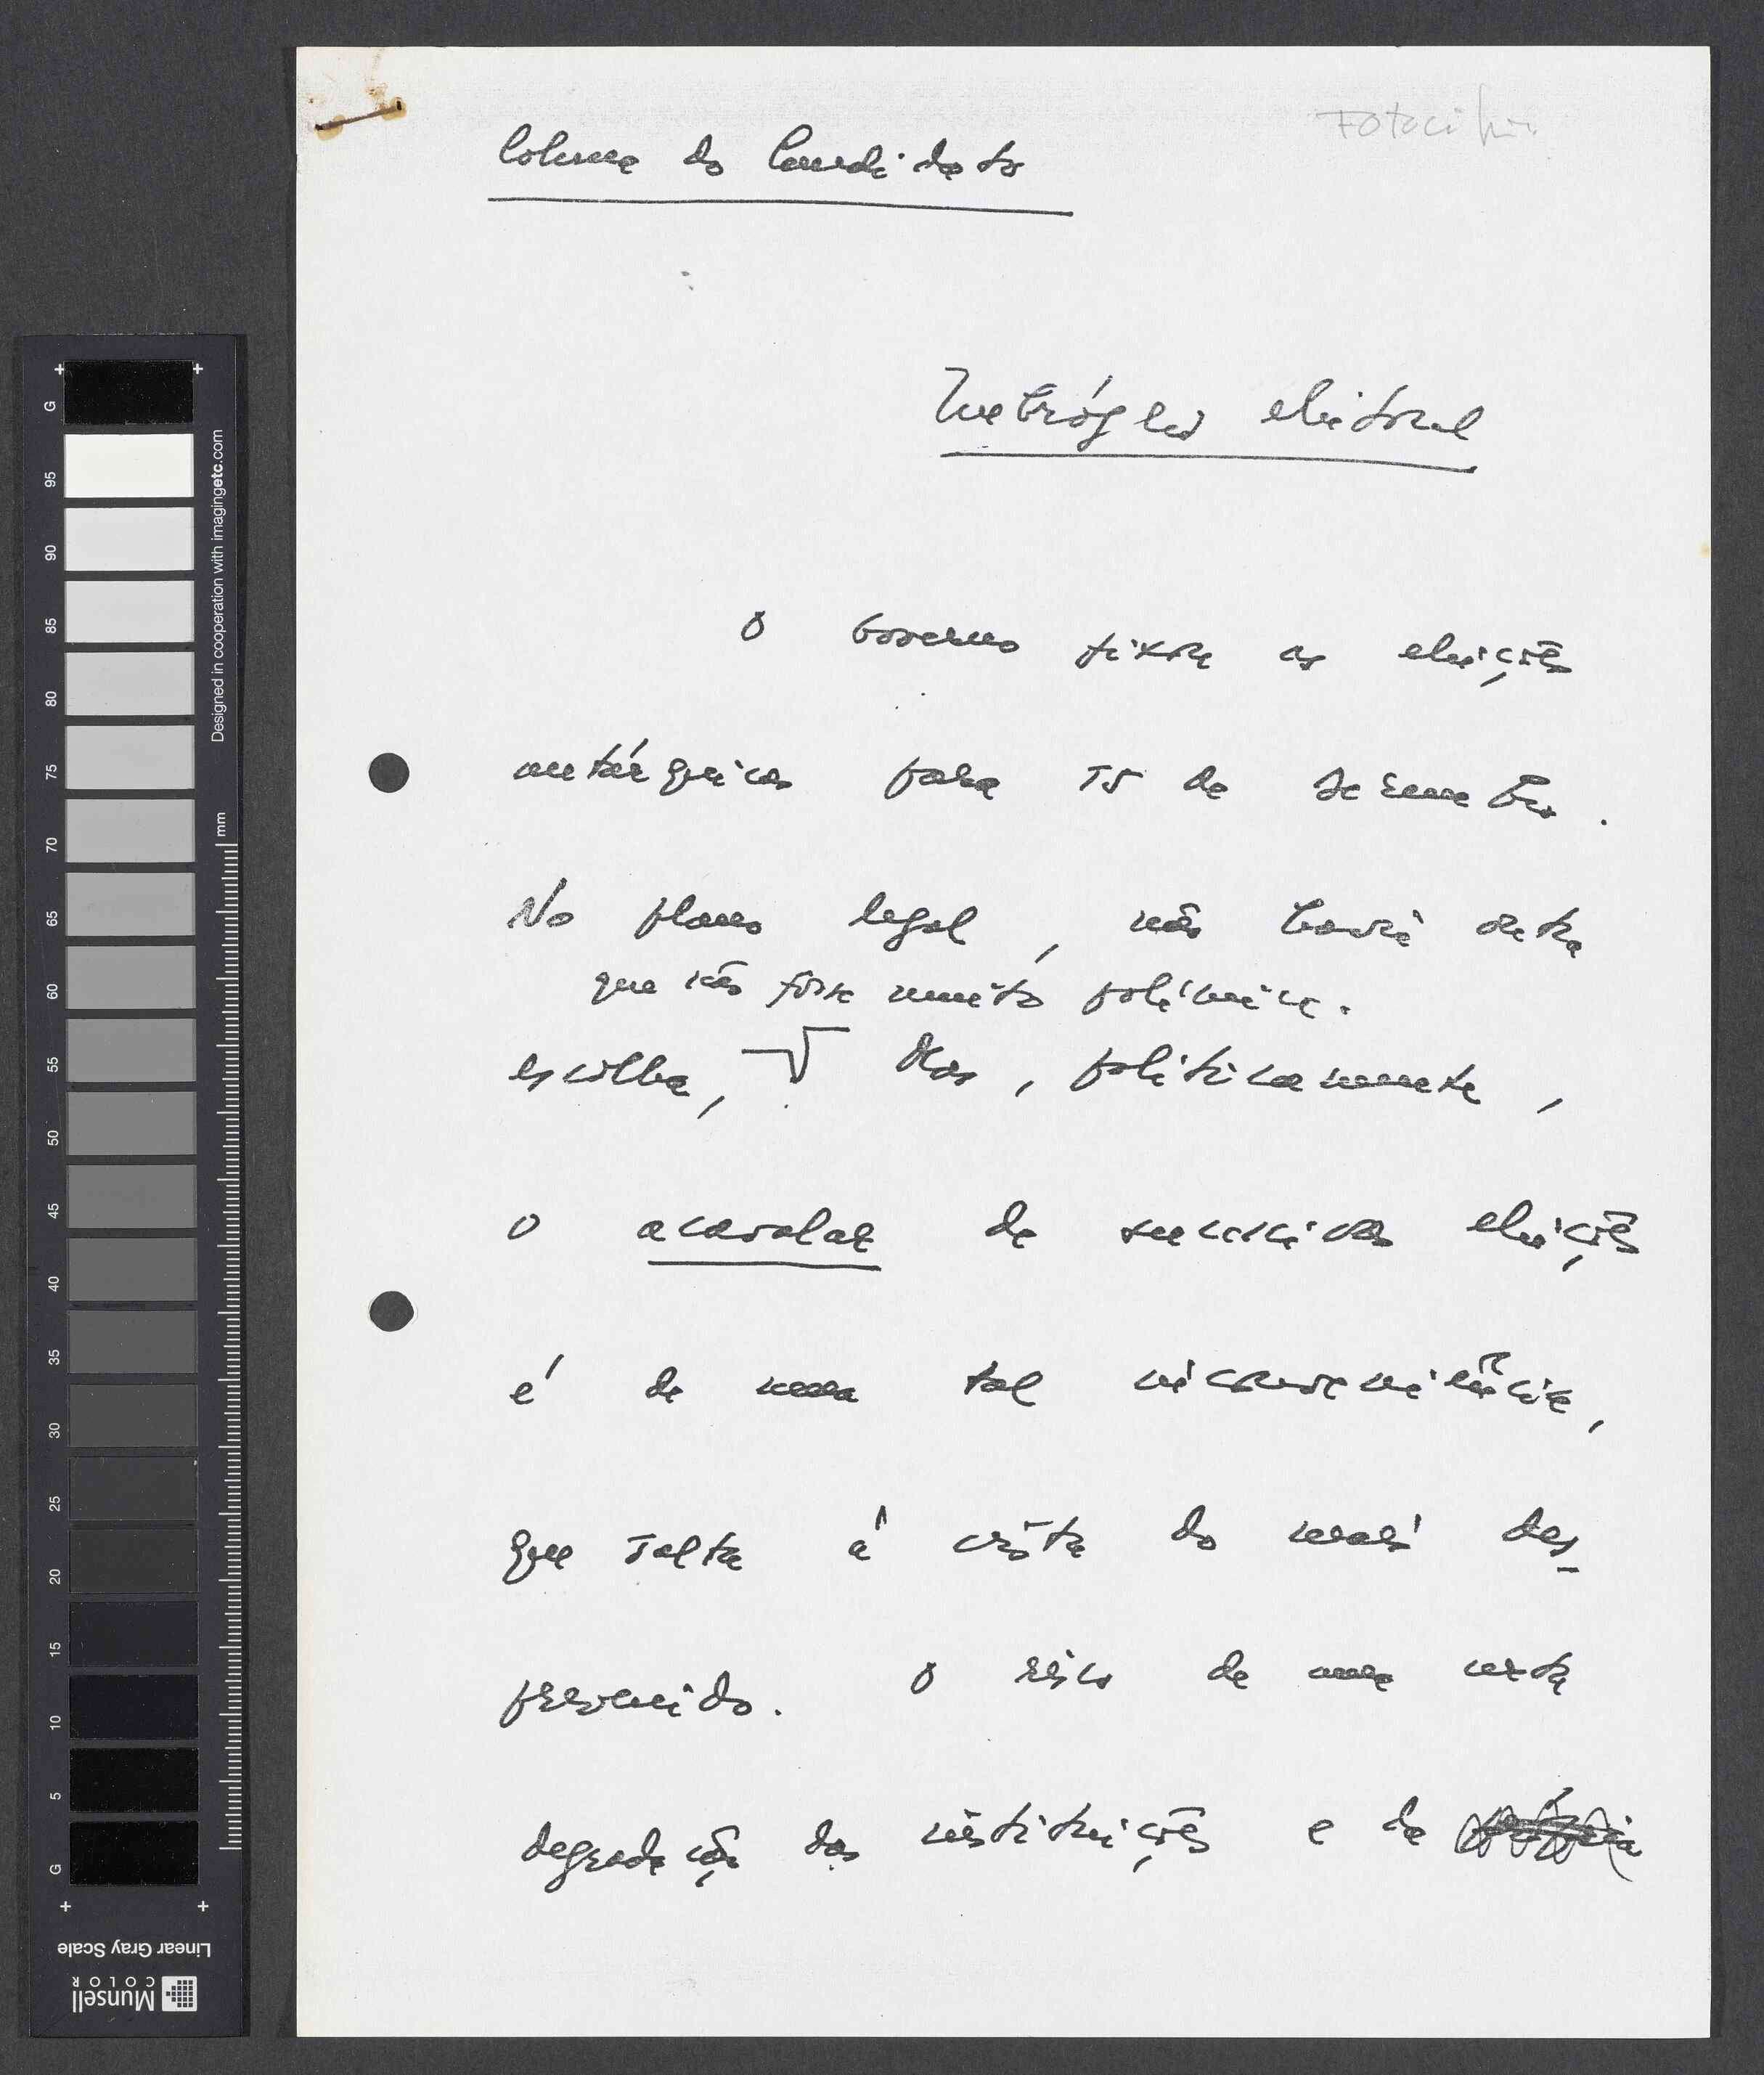 Fotocópia
Coluna do Candidato
Imbróglio eleitoral
O Governo fixou as eleições
autárquicas para 15 de Dezembro.
No plano legal, não havia outra
que não fosse muito polémica.
escolha, Mas, politicamente,
o acavalar de sucessivas eleições
é de uma tal inconveniência,
que salta à vista do mais des-
prevenido. O risco de uma certa
degradação das instituições e da
G
95
90
85
80
75
70
65
60
55
50
45
40
35
30
25
20
15
10
5
G
mm
Designed in cooperation with imagingetc.com
Linear Gray Scale
Munsell
COLOR